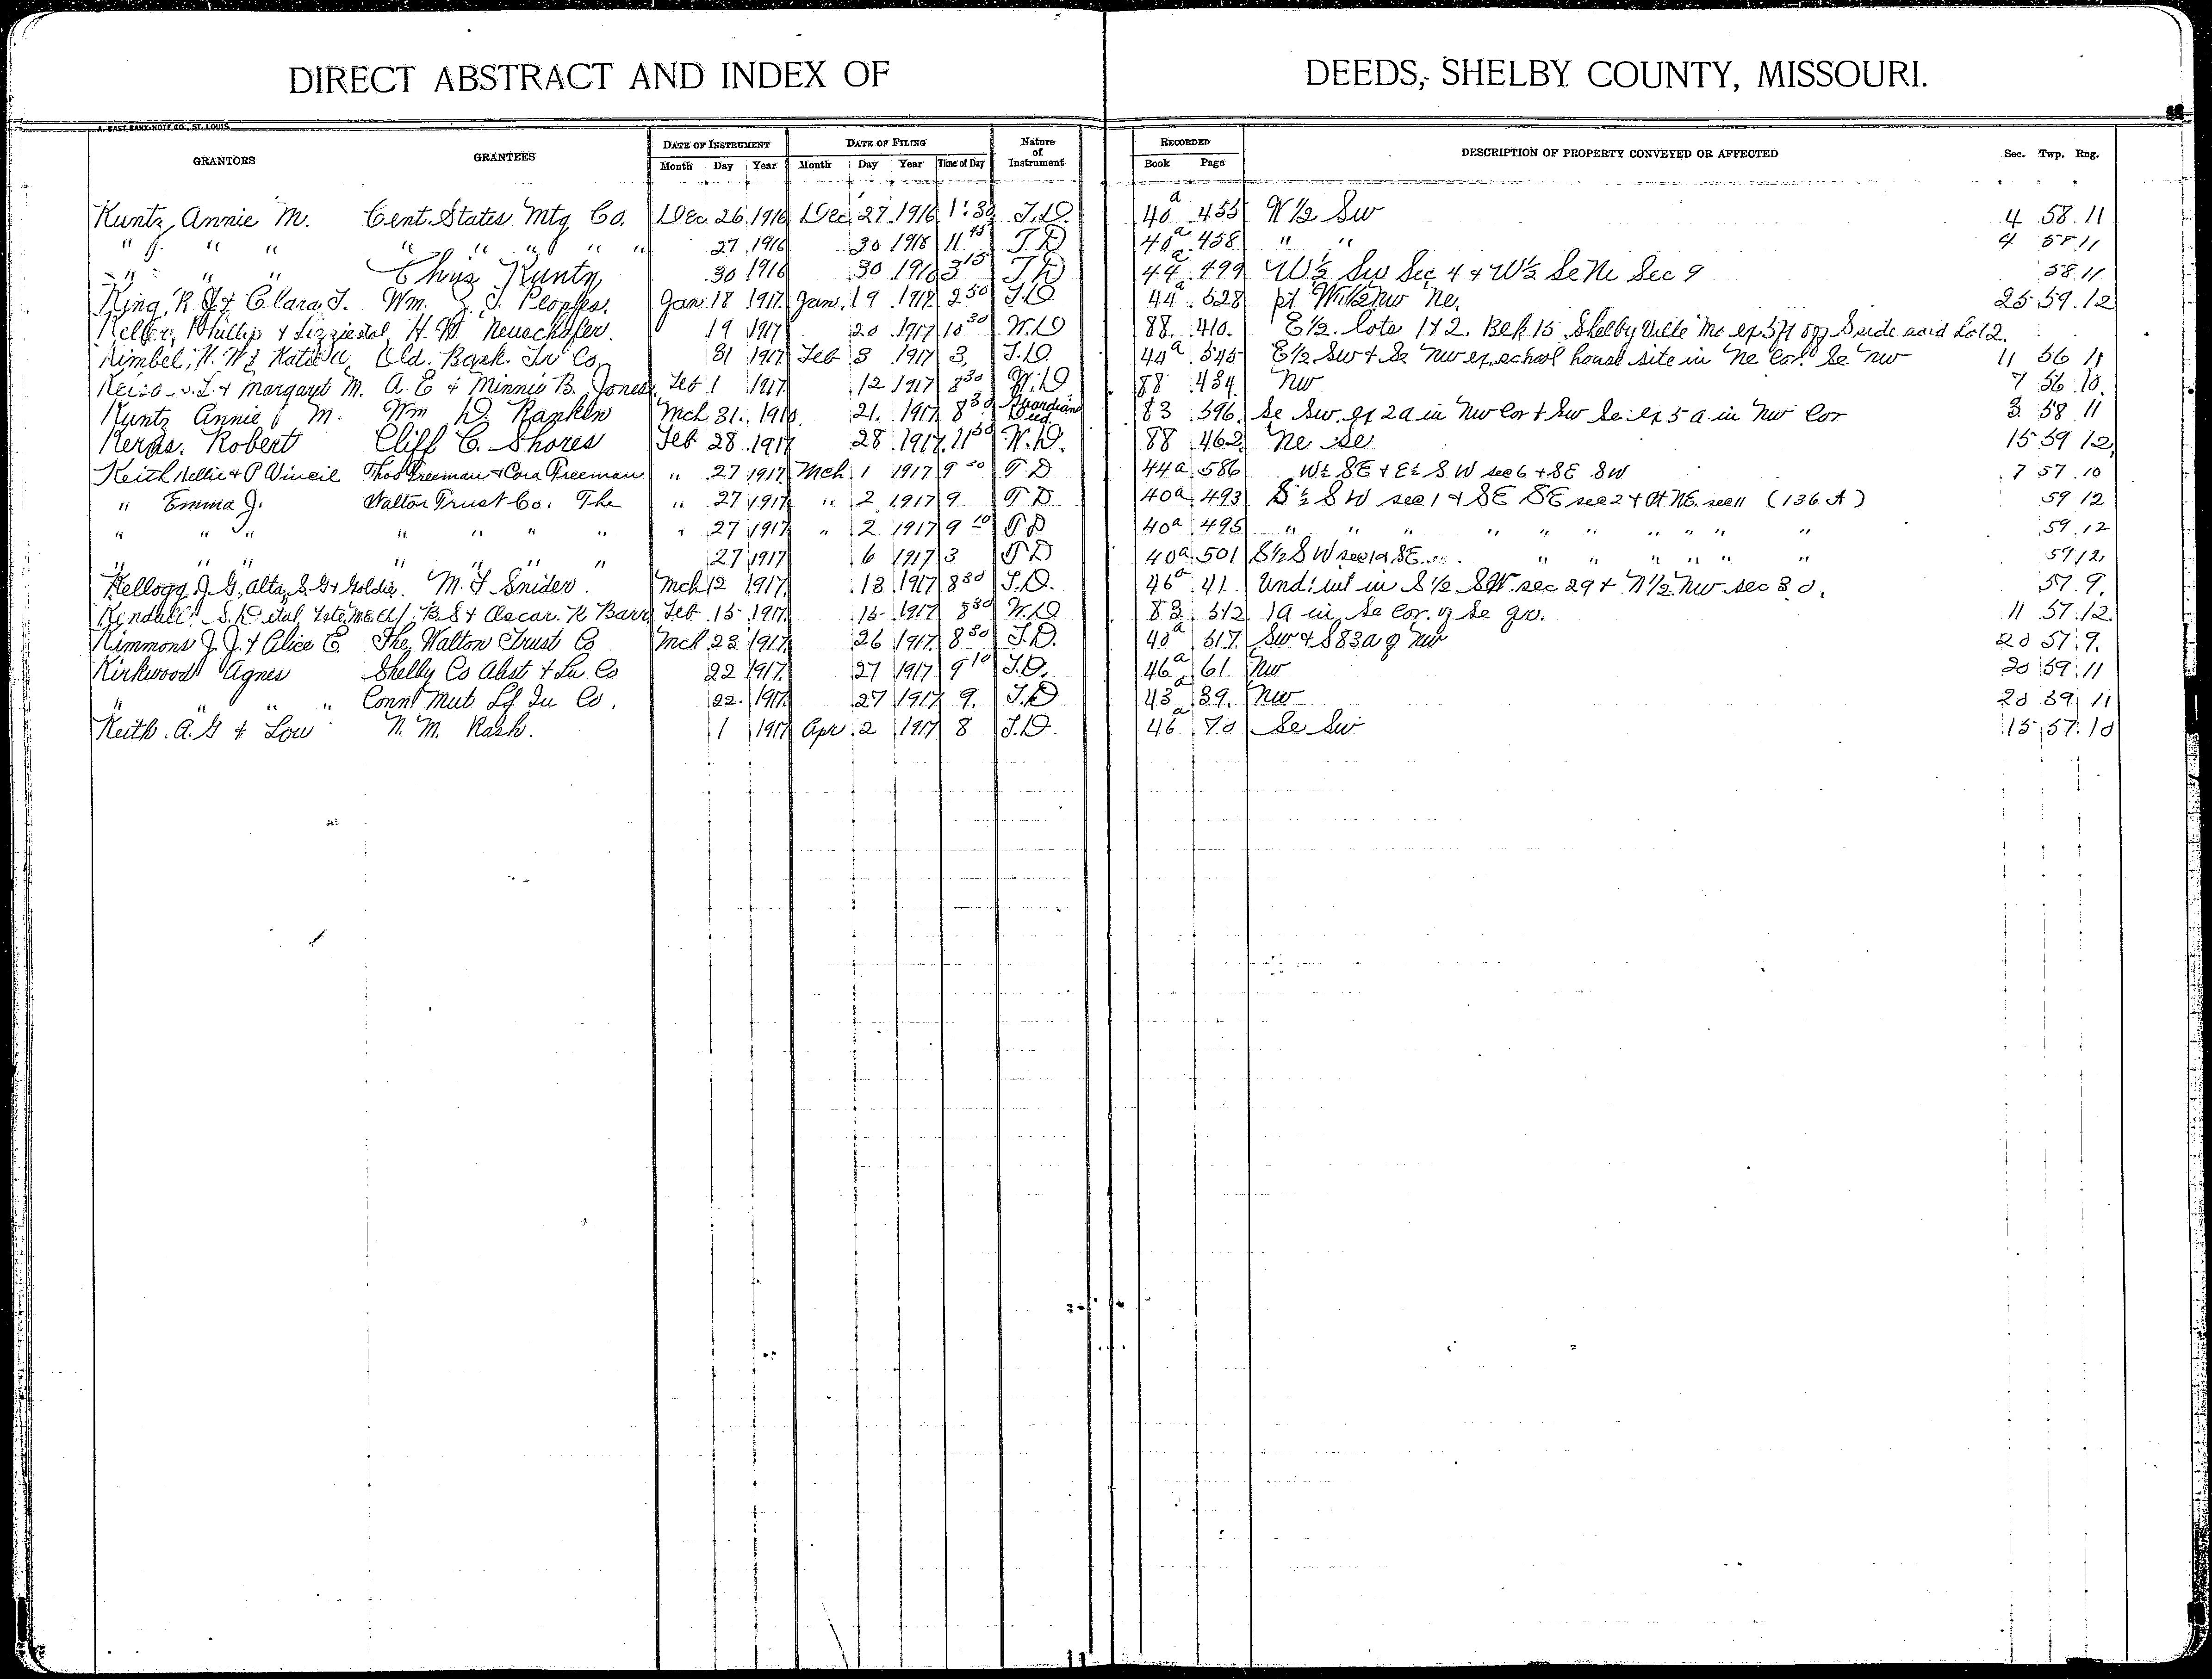 DIRECT ABSTRACT AND INDEX OF DEEDS, SHELBY COUNTY, MISSOURI.
A. GAST BANK NOTE CO., ST. LOUIS
GRANTORS GRANTEES DATE OF INSTRUMENT Month Day Year DATE OF FILING Month Day Year Time of Day Nature of Instrument RECORDED Book Page DESCRIPTION OF PROPERTY CONVEYED OR AFFECTED Sec. Twp. Rng.
Kuntz, Annie M. Cent. States Mtg Co. Dec. 26 1916 Dec. 27 1916 1:30 T.D. 40a 455 W 1/2 Sw 4 58 11
" J. " " " " " " " 27 1916 30 1916 11 45 T D 40a 458 " " 4 58 11
" " " Chris Kuntz 30 1916 30 1916 3 15 T D 44a 499 W 1/2 Sw Sec 4 & W 1/2 Se Ne Sec 9 58 11
King, R. J. & Clara J. Wm. J. Peoples. Jan. 18 1917 Jan. 19 1917 2 50 T.D. 44a 528 pt. W 1/2 Nw Ne. 25 59 12
Keller, Phillip & Lizzie et al, H. W. Neuschafer. 19 1917 20 1917 10 30 W.D 88 410. E 1/2. lots 1 & 2. Blk 15 Shelby Ville Mo ex 5 ft off S side said Lot 2.
Kimbel, H. W & Katie a, Cld. Bank. Tr Co, 31 1917 Feb 3 1917 3, T.D. 44a 545 E 1/2 Sw & Se Nw ex. school house site in Ne Cor. Se Nw 11 56 11
Keiso & Margaret M. A. E & Minnie B. Jones, Feb 1 1917 12 1917 8 30 W.D 88 434 Nw 7 56 10.
Kuntz Annie M. Wm D. Rankin Mch 31. 1916 21. 1917 8 30 Guardians Deed 83 596 Se Sw. ex 2a in Nw Cor & Sw Se ex 5 a in Nw Cor 3 58 11
Kerns. Robert Cliff C. Shores Feb 28 1917 28 1917 11 50 W.D. 88 462 Ne Se 15 59 12
Keith Nellie & P Vincil Thos Freeman & Cora Freeman " 27 1917 Mch 1 1917 9 30 T D 44a 586 W 1/2 SE & E 1/2 S W sec 6 & SE SW 7 57 10
" Emma J. Walton Trust Co. The " 27 1917 " 2 1917 9 T D 40a 493 S 1/2 S W sec 1 & SE SE sec 2 & pt NE. sec 11 (136 A) 59 12
" " " " " " " " 27 1917 " 2 1917 9 10 T D 40a 495 " " " " " " " " " 59 12
" " " " " " " 27 1917 6 1917 3 T D 40a 501 S 1/2 S W sec 1 & SE " " " " " " 59 12
Kellogg J. G, Alta, S. G & Goldie. M. F Snider. Mch 12 1917 13 1917 8 30 T.D. 46a 41 Und: int in S 1/2 SW sec 29 & N 1/2 Nw sec 30. 57 9.
Kendall S. D et al, B. S & Oscar. K Barr Feb 15 1917 15 1917 8 30 W.D 83 512 1a in Se Cor. of Se qr. 11 57 12.
Kimmons J. J. & Alice E. The Walton Trust Co Mch 23 1917 26 1917 8 30 T.D. 40a 517 Sw & S 83a of Nw 20 57 9.
Kirkwood Agnes Shelby Co Abst & Ln Co 22 1917 27 1917 9 10 T.D. 46a 61 Nw 20 59 11
" " " Conn Mut Lf In Co. 22 1917 27 1917 9. T.D 43a 39. Nw 20 59 11
Keith. A. G & Lou N. M. Rash. 1 1917 Apr 2 1917 8 T.D 46a 70 Se Sw 15 57 10